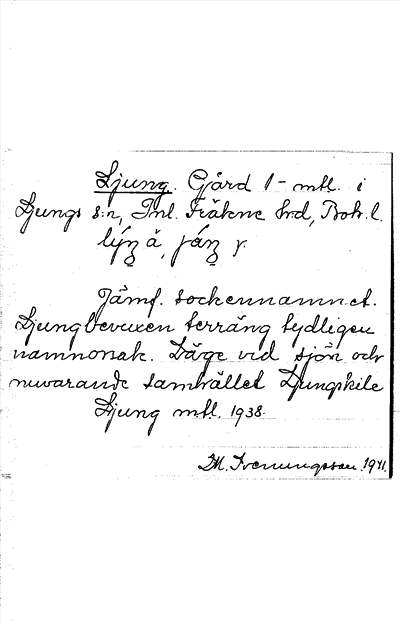 Ljung. Gård 1 - mtl. i
Ljungs s:n, Inl. Fräkne hrd, Boh. l.
Jämf. sockennamnet.
Ljungbevuxen terräng tydligen
namnorsak. Läge vid sjön och
nuvarande samhället Ljungskile
Ljung mtl. 1938.
M. Ivenungsson 1941.